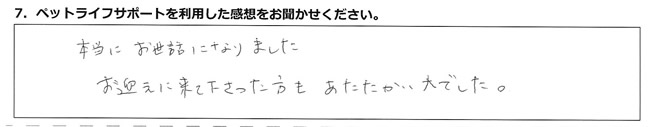 7．ペットライフサポートを利用した感想をお聞かせください。
本当に お世話になりました
お迎えに来て下さった方も あたたかい人でした。